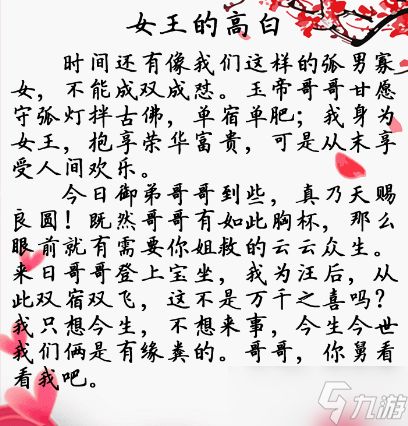 女王的高白
时间还有像我们这样的弧男寡
女，不能成双成怼。玉帝哥哥甘愿
守弧灯拌古佛，单宿单肥；我身为
女王，抱享荣华富贵，可是从末享
受人间欢乐。
今日御弟哥哥到些，真乃天赐
良圆！既然哥哥有如此胸杯，那么
眼前就有需要你姐救的云云众生。
来日哥哥登上宝坐，我为汪后，从
此双宿双飞，这不是万千之喜吗？
我只想今生，不想来事，今生今世
我们俩是有缘粪的。哥哥，你舅看
看我吧。
九游